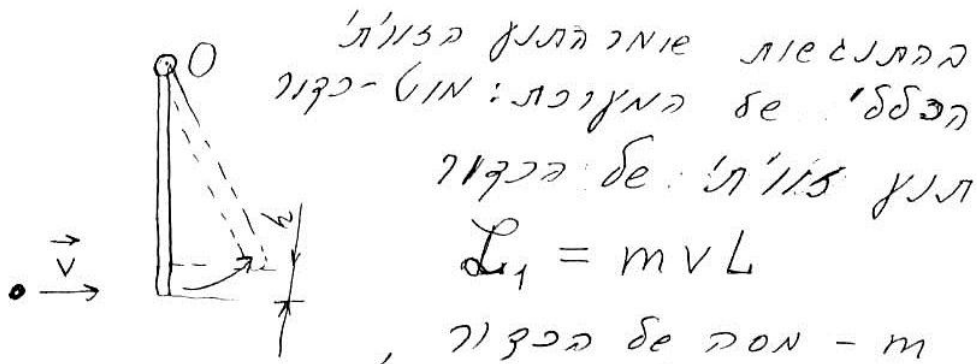 בהתנגשות שומר התנע הזוויתי
הכללי של המערכת: מוט-כדור
תנע זוויתי של הכדור
L₁ = mvL
m - מסה של הכדור,
O
h
v⃗